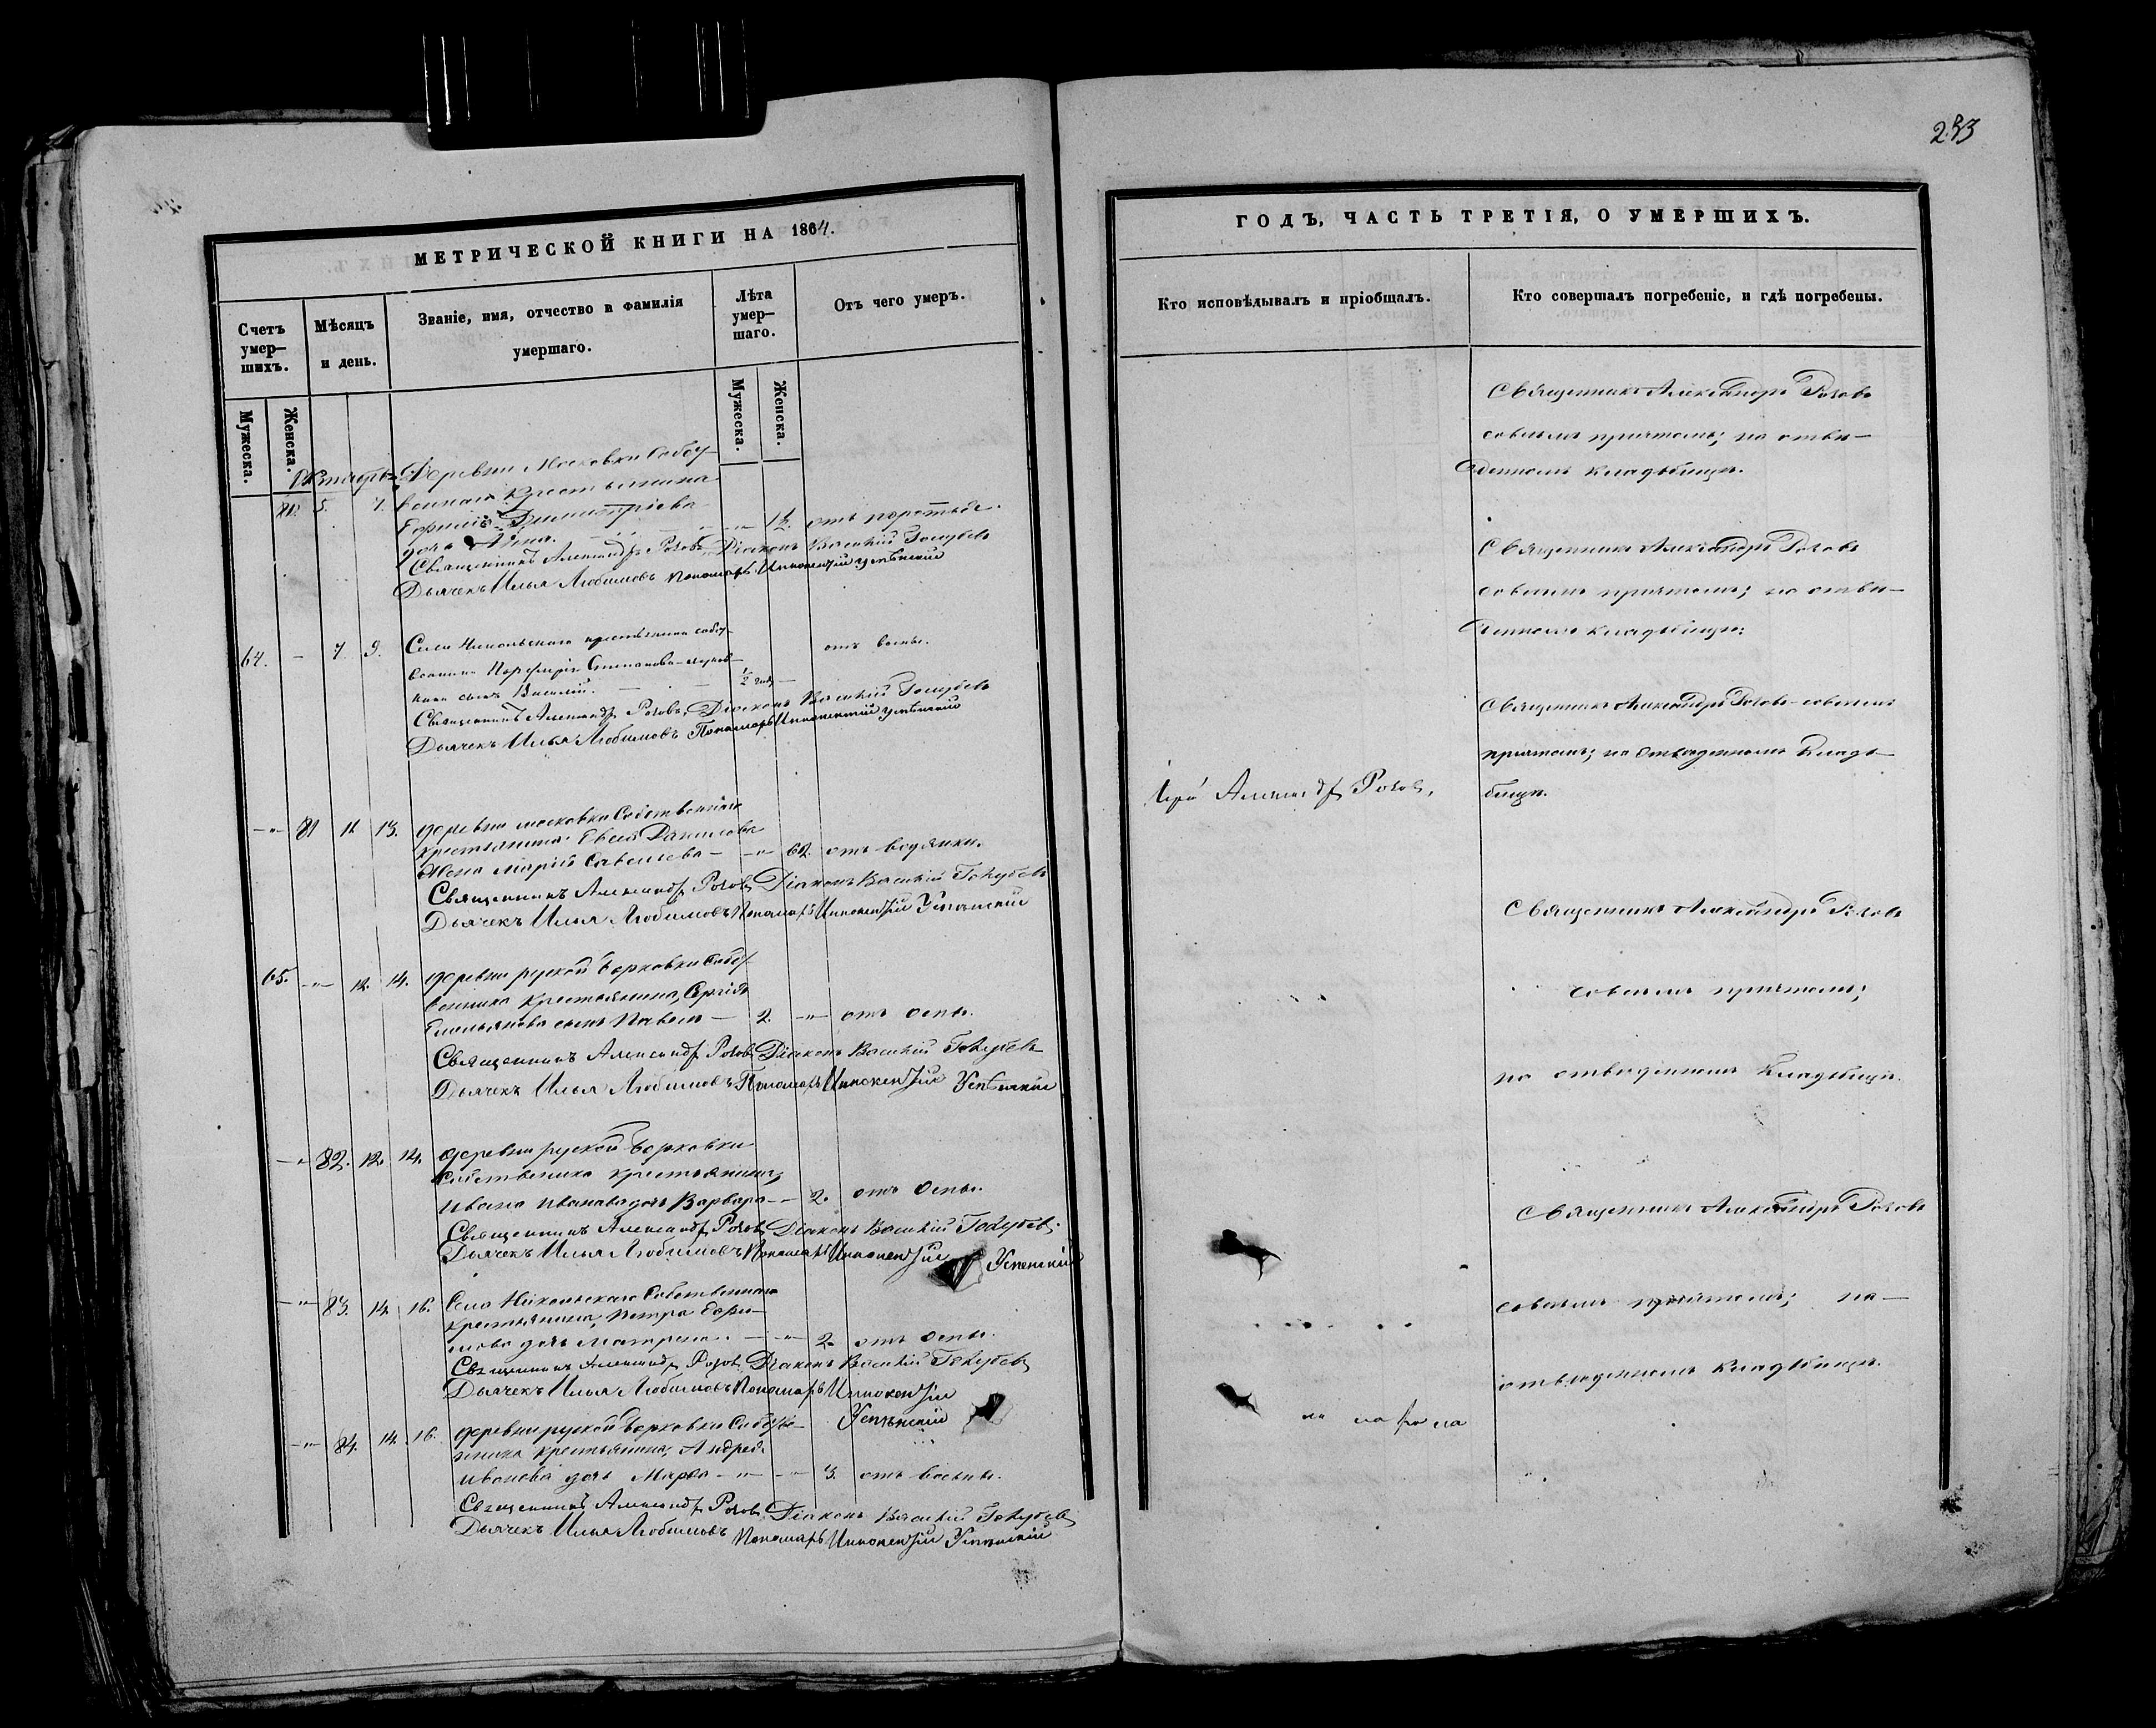 233
МЕТРИЧЕСКОЙ КНИГИ НА 1864.
Счетъ умер-шихъ.
Мѣсяцъ и день.
Званіе, имя, отчество и фамилія умершаго.
Лѣта умер-шаго.
Отъ чего умеръ.
Мужеска.
Женска.
Мужеска.
Женска.
Деревни Московки Собст
5. 7. веннаго крестьянина
Димитріева
дочь
Священникъ Александръ Розовъ Діаконъ Василій Голубевъ
Дьячекъ Илья Любимовъ Пономарь Иннокентій Успенскій
64. - 7. 9. Села Никольскаго крестьянина собст
Степанова
сынъ Василій. 1/2 года
Священникъ Александръ Розовъ, Діаконъ Василій Голубевъ
Дьячекъ Илья Любимовъ Пономарь Иннокентій Успенскій
-"- 81 11 13. деревни московки Собственника
крестьянина Евсея Данилова
жена Марія Савельева - -"- 62. отъ водянки.
Священникъ Александръ Розовъ Діаконъ Василій Голубевъ
Дьячекъ Илья Любимовъ Пономарь Иннокентій Успенскій
65. -"- 12. 14. деревни руской Борковки Собст
венника крестьянина, Сергія
Емельянова сынъ Павелъ - 2. -"- отъ оспы.
Священникъ Александръ Розовъ Діаконъ Василій Голубевъ
Дьячекъ Илья Любимовъ Пономарь Иннокентій Успенскій
-"- 82. 12. 14. деревни руской Борковки
Собственника крестьянина,
Ивана Иванова дочь Варвара - - 2. отъ Оспы.
Священникъ Александръ Розовъ Діаконъ Василій Голубевъ
Дьячекъ Илья Любимовъ Пономарь Иннокентій Успенскій
-"- 83. 14. 16. Села Никольскаго Собственника
крестьянина, Петра Ефи-
мова дочь Матрена. - -"- 2. отъ Оспы.
Священникъ Александръ Розовъ Діаконъ Василій Голубевъ
Дьячекъ Илья Любимовъ Пономарь Иннокентій
Успенскій
-"- 84. 14. 16. деревни руской Борковки Собстве-
нника крестьянина, Андрея
Иванова дочь Марѳа -"- -"- 3. отъ воспы.
Священникъ Александръ Розовъ Діаконъ Василій Голубевъ
Дьячекъ Илья Любимовъ Пономарь Иннокентій Успенскій
ГОДЪ, ЧАСТЬ ТРЕТІЯ, О УМЕРШИХЪ.
Кто исповѣдывалъ и пріобщалъ.
Кто совершалъ погребеніе, и гдѣ погребены.
Священникъ Александръ Розовъ
совсемъ причтомъ; на отве-
денномъ кладбищѣ.
Священникъ Александръ Розовъ
совсемъ причтомъ; на отве-
денномъ кладбищѣ.
Священникъ Александръ Розовъ совсемъ
причтомъ; на отведенномъ Клад-
бищѣ.
Іерей Александръ Розовъ.
Священникъ Александръ Розовъ
совсемъ причтомъ;
на отведенномъ Кладбищѣ.
Священникъ Александръ Розовъ
совсемъ причтомъ; на-
отведенномъ кладбищѣ.